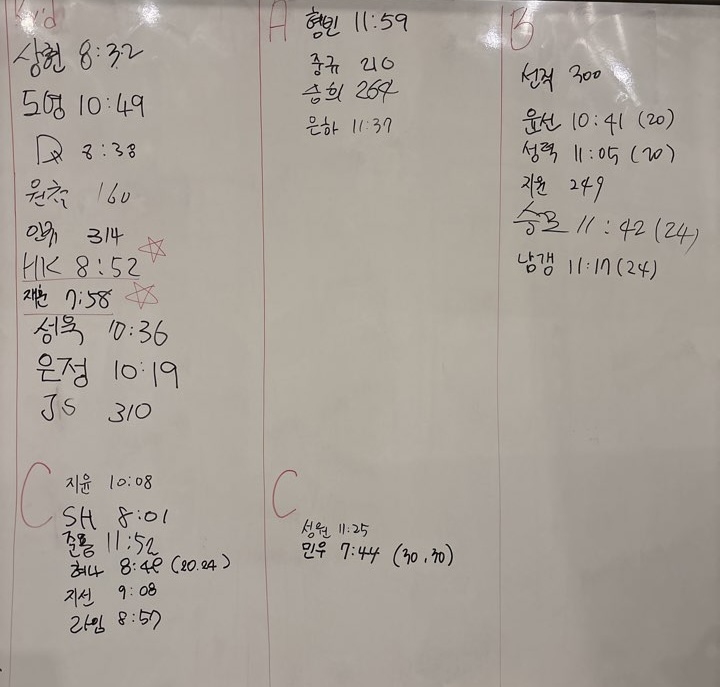 Rx'd
상현 8:32
도영 10:49
DX 8:38
원철 160
인규 314
HK 8:52
재훈 7:58
성욱 10:36
은정 10:19
JS 310
A
형빈 11:59
중규 210
승희 264
은하 11:37
B
선적 300
윤선 10:41 (20)
성력 11:05 (20)
지윤 249
승모 11:42 (24)
남갱 11:17 (24)
C
지윤 10:08
SH 8:01
준용 11:52
혜나 8:48 (20.24)
지선 9:08
라임 8:57
C
성원 11:25
민우 7:44 (30.30)